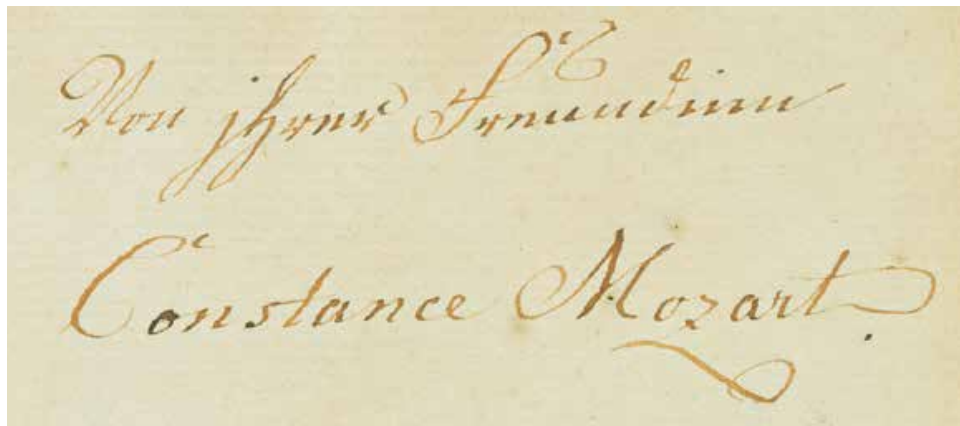 Von ihrer Freundinn
Constance Mozart.